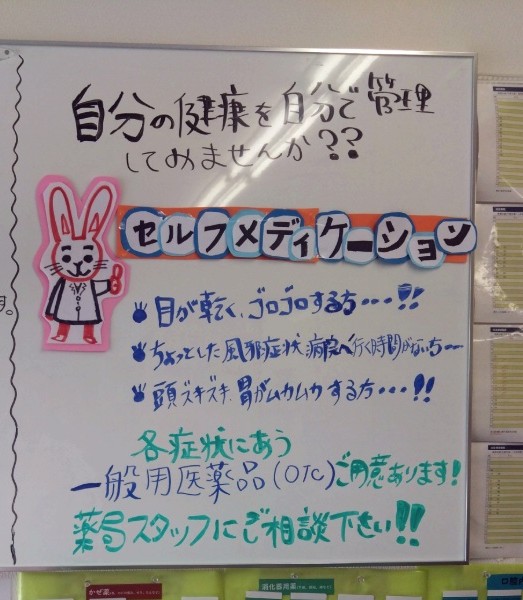 自分の健康を自分で管理
してみませんか??
セルフメディケーション
目が乾く、ゴロゴロする方・・・!!
ちょっとした風邪症状、病院へ行く時間がない方・・・
頭ズキズキ、胃がムカムカする方・・・!!
各症状にあう
一般用医薬品(OTC)ご用意あります!
薬局スタッフにご相談下さい!!
かぜ薬
消化器用薬